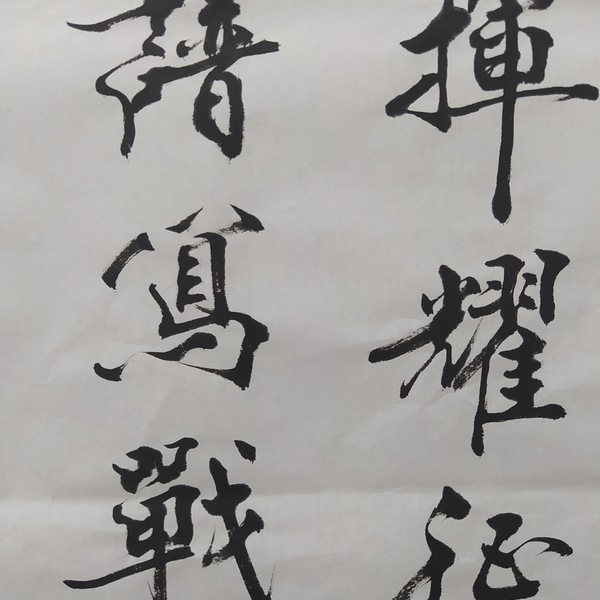 揮耀征
譜寫戰